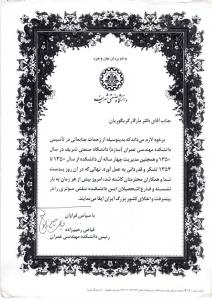 به نام یزدان جان و خرد
دانشگاه صنعتی شریف
جناب آقای دکتر مارکار گریگوریان
برخود لازم می‌داند که بدینوسیله از زحمات جنابعالی در تأسیس
دانشکده مهندسی عمران (سازه) دانشگاه صنعتی شریف در سال
۱۳۵۰ و همچنین مدیریت چهار ساله آن دانشکده از سال ۱۳۵۰ تا
۱۳۵۴ تشکر و قدردانی به عمل آورد. نهالی که در آن روز بدست
شما و همکاران محترمتان کاشته شد، امروز بیش از هر زمان به بار
نشسته و فارغ‌التحصیلان این دانشکده نقشی موثری را در
پیشرفت و اعتلای کشور بزرگ ایران ایفا می‌نمایند.
با سپاس فراوان
فیاض رحیم‌زاده
رئیس دانشکده مهندسی عمران